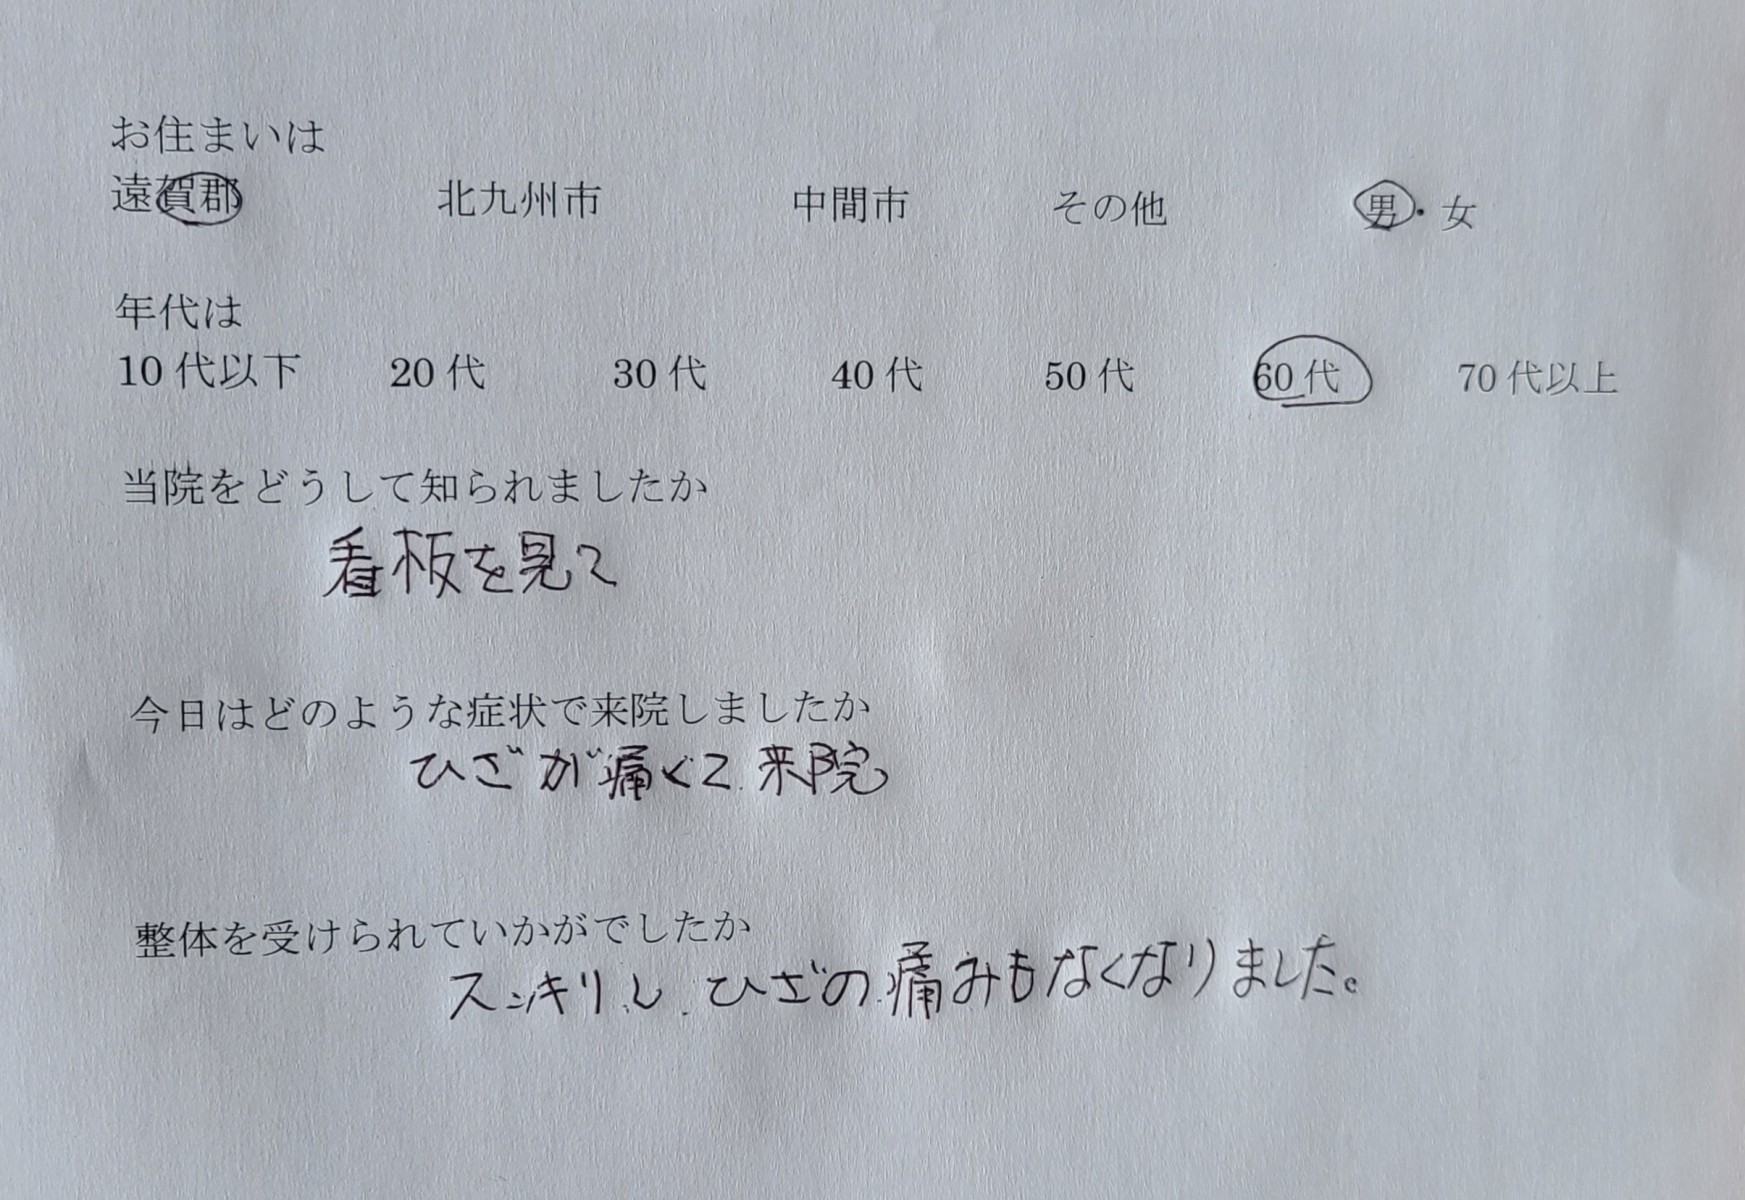 お住まいは
遠賀郡 北九州市 中間市 その他 男・女
年代は
10代以下 20代 30代 40代 50代 60代 70代以上
当院をどうして知られましたか
看板を見て
今日はどのような症状で来院しましたか
ひざが痛くて来院
整体を受けられていかがでしたか
スッキリし ひざの痛みもなくなりました。